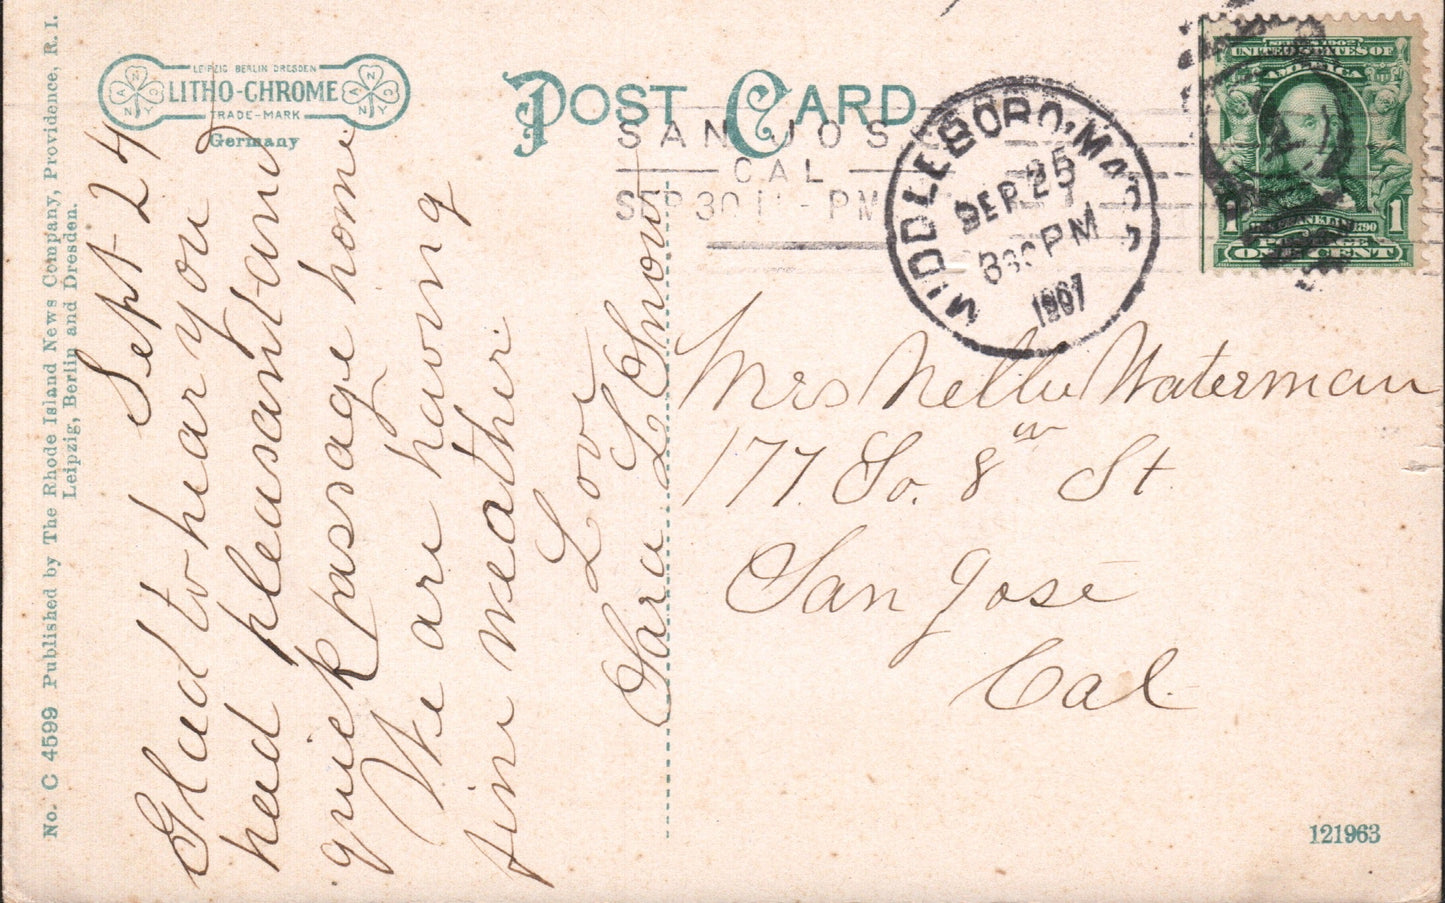 No. C 4599 Published by The Rhode Island News Company, Providence, R. I.
Leipzig, Berlin and Dresden.
LEIPZIG BERLIN DRESDEN
LITHO-CHROME
TRADE-MARK
Germany
POST CARD
SAN JOS
CAL
SEP 30 11 - PM
MIDDLEBORO, MASS
SEP 25
830 PM
1907
SERIES 1902
UNITED STATES OF
AMERICA
1
FRANKLIN
1790
1
POSTAGE
ONE CENT
Sept 24
Glad to hear you
had pleasant and
quick passage home
We are having
fine weather.
Love
Sara L Snow
Mrs Nellie Waterman
177. So. 8th St
San José
Cal.
121963